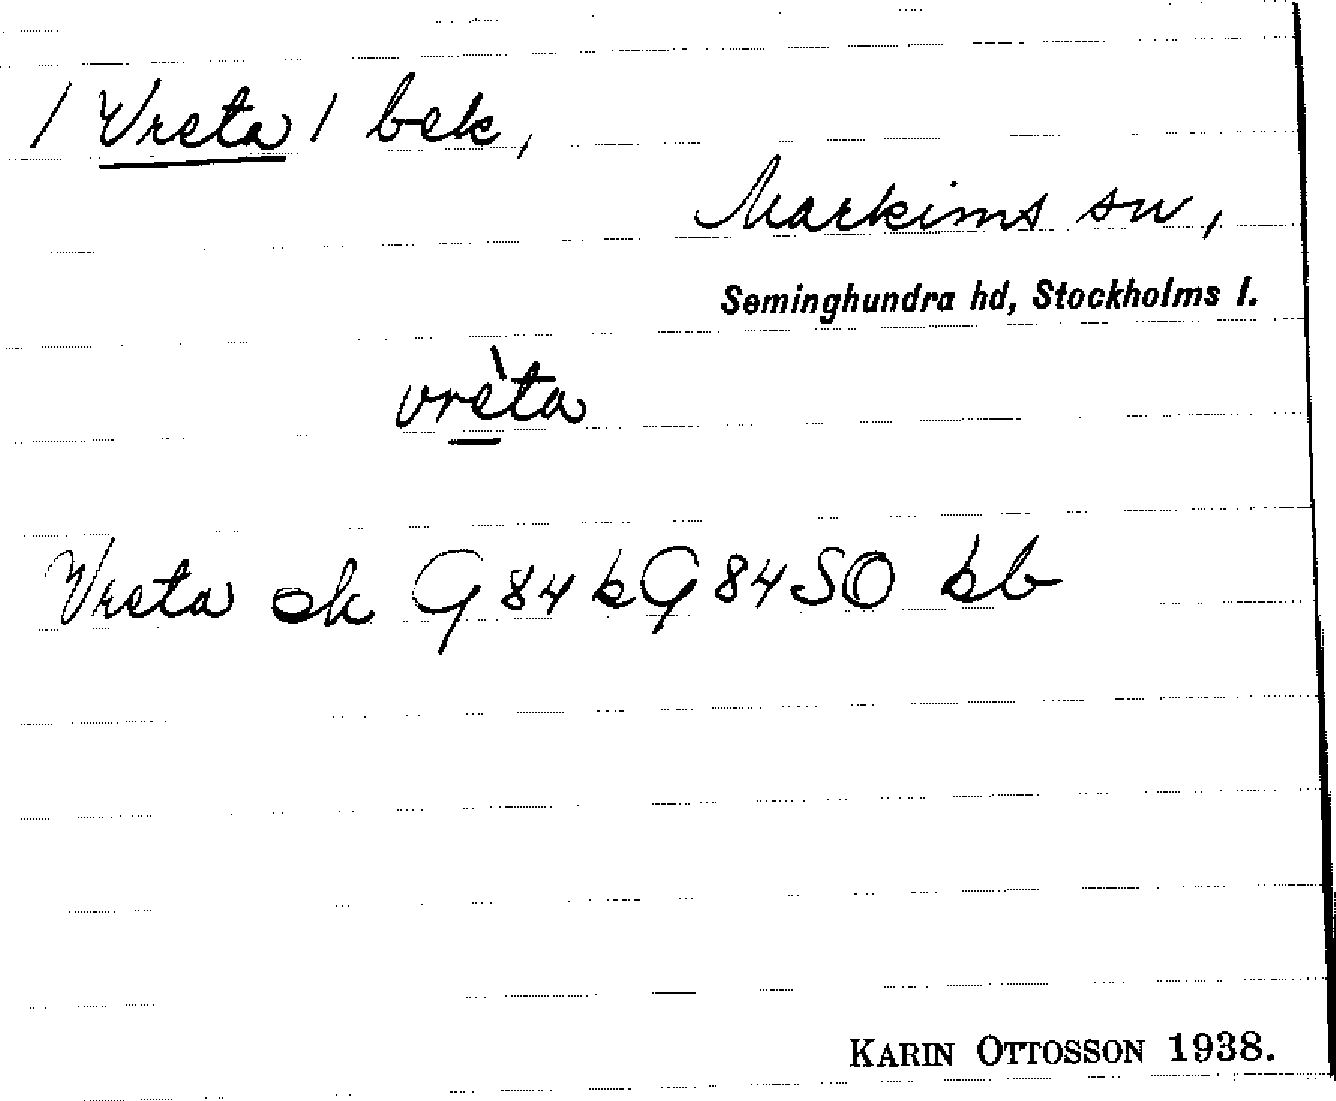 / Vreta / bek,
Markims sn,
Seminghundra hd, Stockholms l.
vrèta
Vreta ek G 84 k G 84 SO kb
KARIN OTTOSSON 1938.